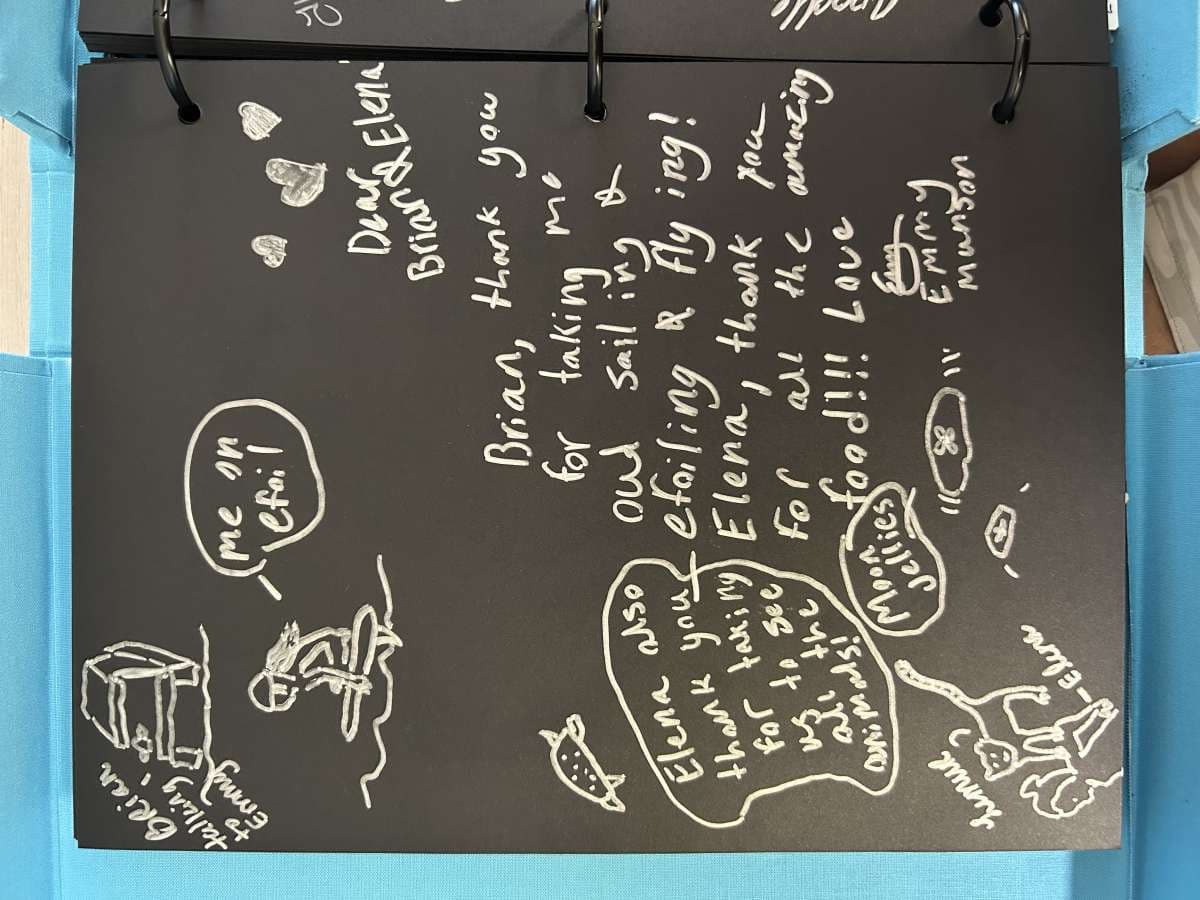 Brian
talking
to
Emmy
me on
efoil
Dear
Brian & Elena
Brian, thank you
for taking me
out sailing &
efoiling & flying!
Elena, thank you
for all the amazing
food!!! Love
Emmy
Munson
Elena also
thank you
for taking
us to see
all the
animals!
Moon
Jellies
Lemur
-Elena